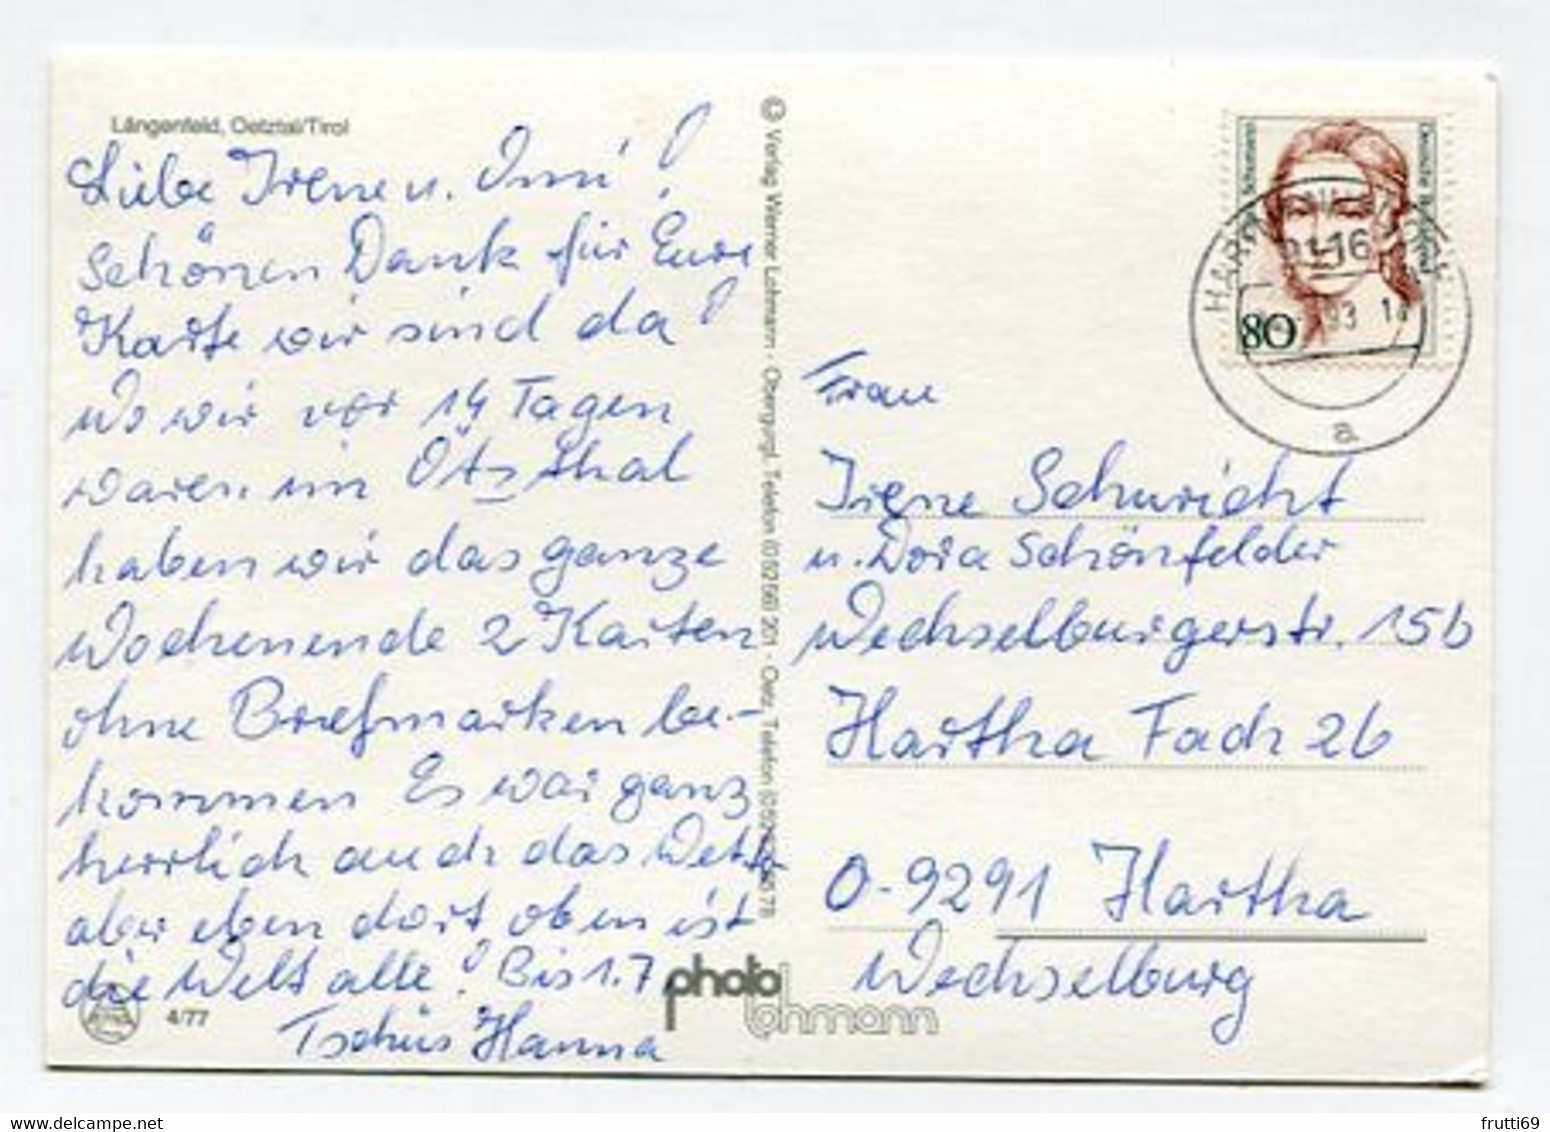 Längenfeld, Oetztal/Tirol
Liebe Irene u. Omi!
Schönen Dank für Eure
Karte wir sind da!
Wo wir vor 14 Tagen
waren im Ötzthal
haben wir das ganze
Wochenende 2 Karten
ohne Briefmarken be-
kommen Es war ganz
herrlich auch das Wetter
aber eben dort oben ist
die Welt alle! Bis 1.7
Tschüs Hanna
4/77
© Verlag Werner Lohmann · Obergurgl, Telefon (05256) 201 · Oetz, Telefon
photo
lohmann
80
93
a
Frau
Irene Schuricht
u. Dora Schönfelder
Wechselburgerstr. 15b
Hartha Fach 26
O-9291 Hartha
Wechselburg
frutti69